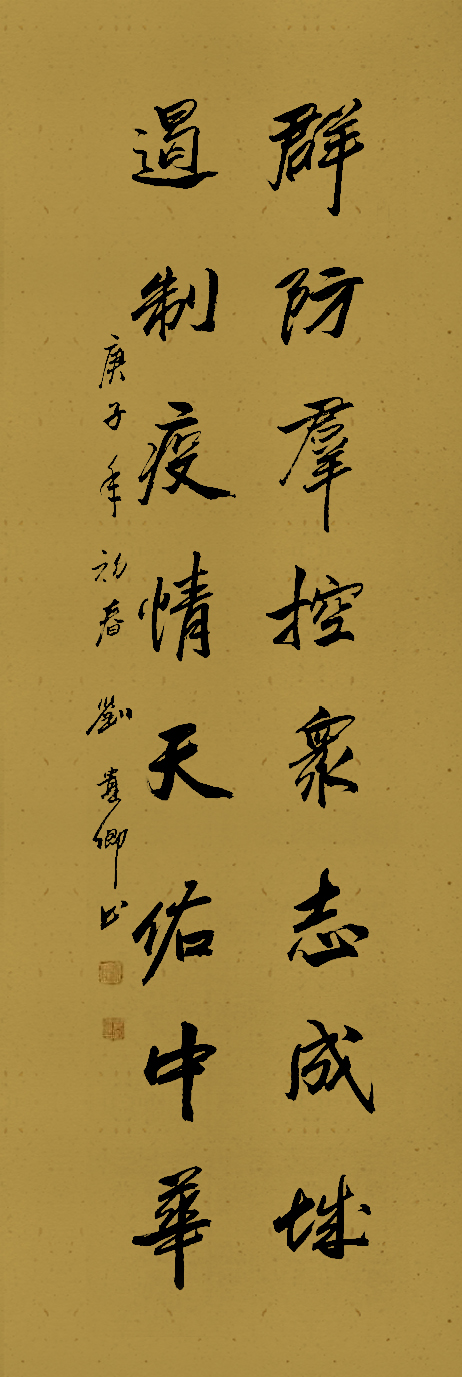 群防羣控衆志成城
遏制疫情天佑中華
庚子年初春劉卿书